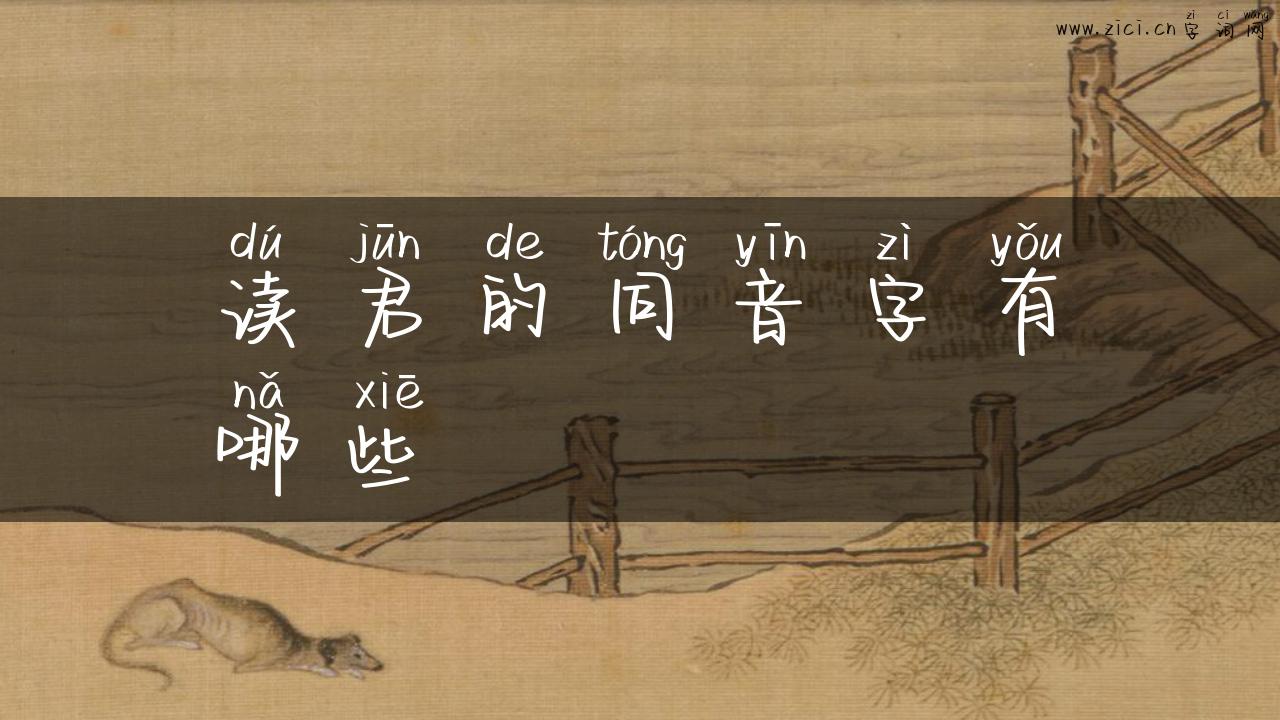 zì cí wǎng
www.zici.cn 字词网
dú jūn de tóng yīn zì yǒu
读君的同音字有
nǎ xiē
哪些